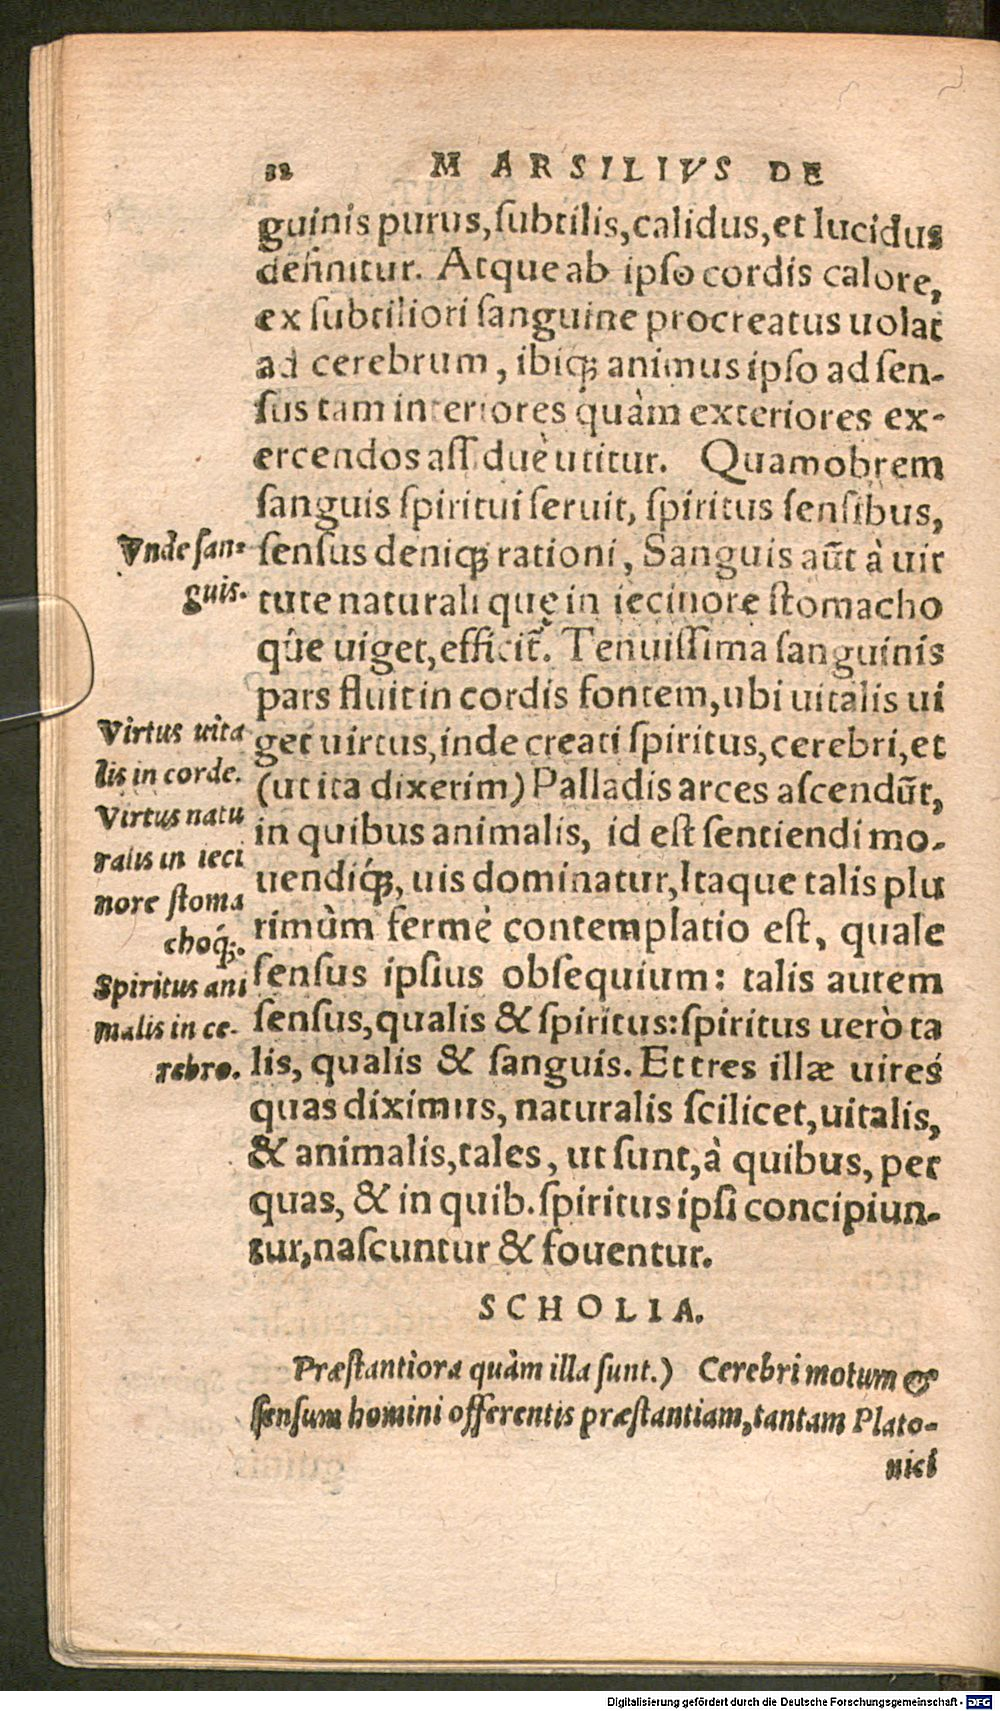 32 MARSILIVS DE
guinis purus, ſubtilis, calidus, et lucidus
definitur. Atque ab ipſo cordis calore,
ex ſubtiliori ſanguine procreatus uolat
ad cerebrum, ibiq́; animus ipſo ad ſen-
ſus tam interiores quàm exteriores ex-
ercendos aſſiduè utitur. Quamobrem
ſanguis ſpiritui ſeruit, ſpiritus ſenſibus,
ſenſus deniq́; rationi, Sanguis aũt à uir
tute naturali quę in iecinore ſtomacho
q́ue uiget, efficit̃. Tenuiſſima ſanguinis
pars fluit in cordis fontem, ubi uitalis ui
get uirtus, inde creati ſpiritus, cerebri, et
(ut ita dixerim) Palladis arces aſcendũt,
in quibus animalis, id eſt ſentiendi mo-
uendiq́;, uis dominatur, Itaque talis plu
rimùm fermè contemplatio eſt, quale
ſenſus ipſius obſequium: talis autem
ſenſus, qualis & ſpiritus: ſpiritus uerò ta
lis, qualis & ſanguis. Et tres illæ uires
quas diximus, naturalis ſcilicet, uitalis,
& animalis, tales, ut ſunt, à quibus, per
quas, & in quib. ſpiritus ipſi concipiun-
tur, naſcuntur & fouentur.
Vnde ſan-
guis.
Virtus uita
lis in corde.
Virtus natu
ralis in ieci
nore ſtoma
choq́;.
Spiritus ani
malis in ce-
rebro.
SCHOLIA.
Præſtantiora quàm illa ſunt.) Cerebri motum &
ſenſum homini offerentis præſtantiam, tantam Plato-
nici
Digitalisierung gefördert durch die Deutsche Forschungsgemeinschaft - DFG